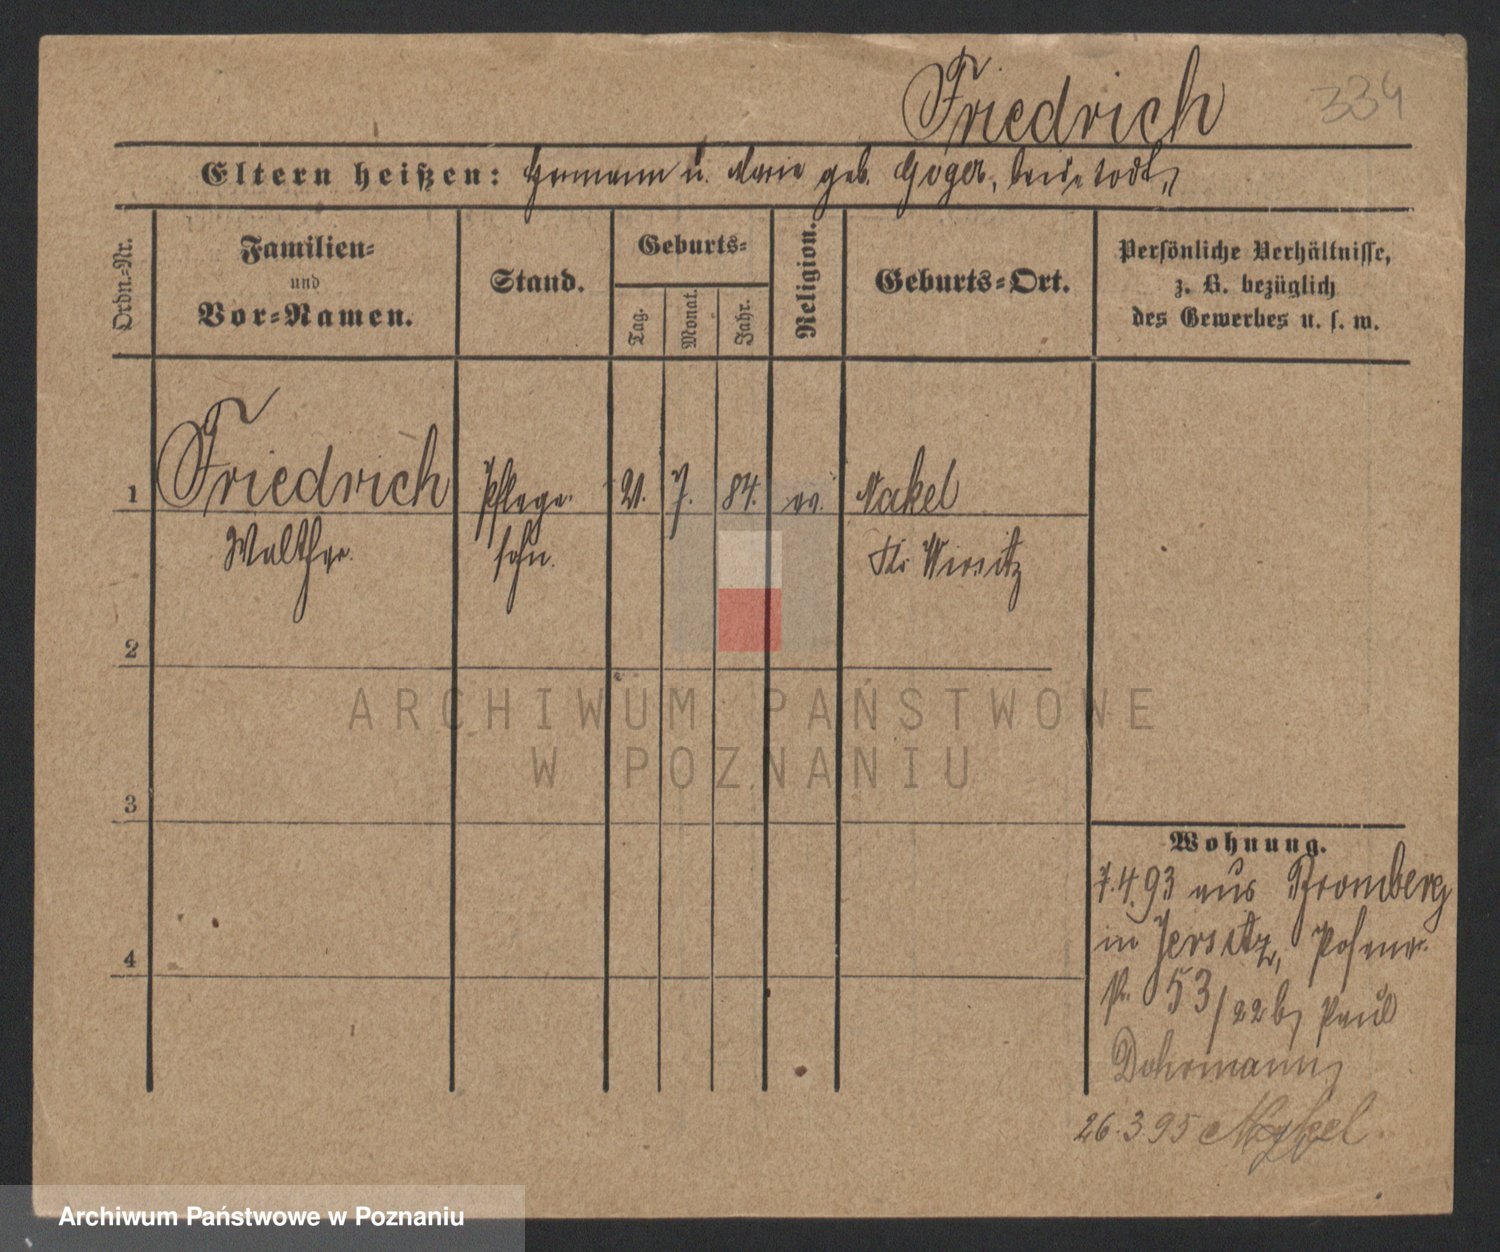 Friedrich 334
Eltern heißen: Hermann u. Marie geb. beide todt,
Ordn.-Nr.
Familien-
und
Vor-Namen.
Stand.
Geburts-
Tag.
Monat.
Jahr.
Religion.
Geburts-Ort.
Persönliche Verhältnisse,
z. B. bezüglich
des Gewerbes u. s. w.
1 Friedrich Pflege- 21. 7. 84. ev. Nakel
Walther. sohn. Kr. Wirsitz
2
3
4
Wohnung.
7.4.93 aus Bromberg
in Jersitz, Posener-
53/22b, Paul
Dohrmann,
26.3.95 Nakel
ARCHIWUM PAŃSTWOWE
W POZNANIU
Archiwum Państwowe w Poznaniu